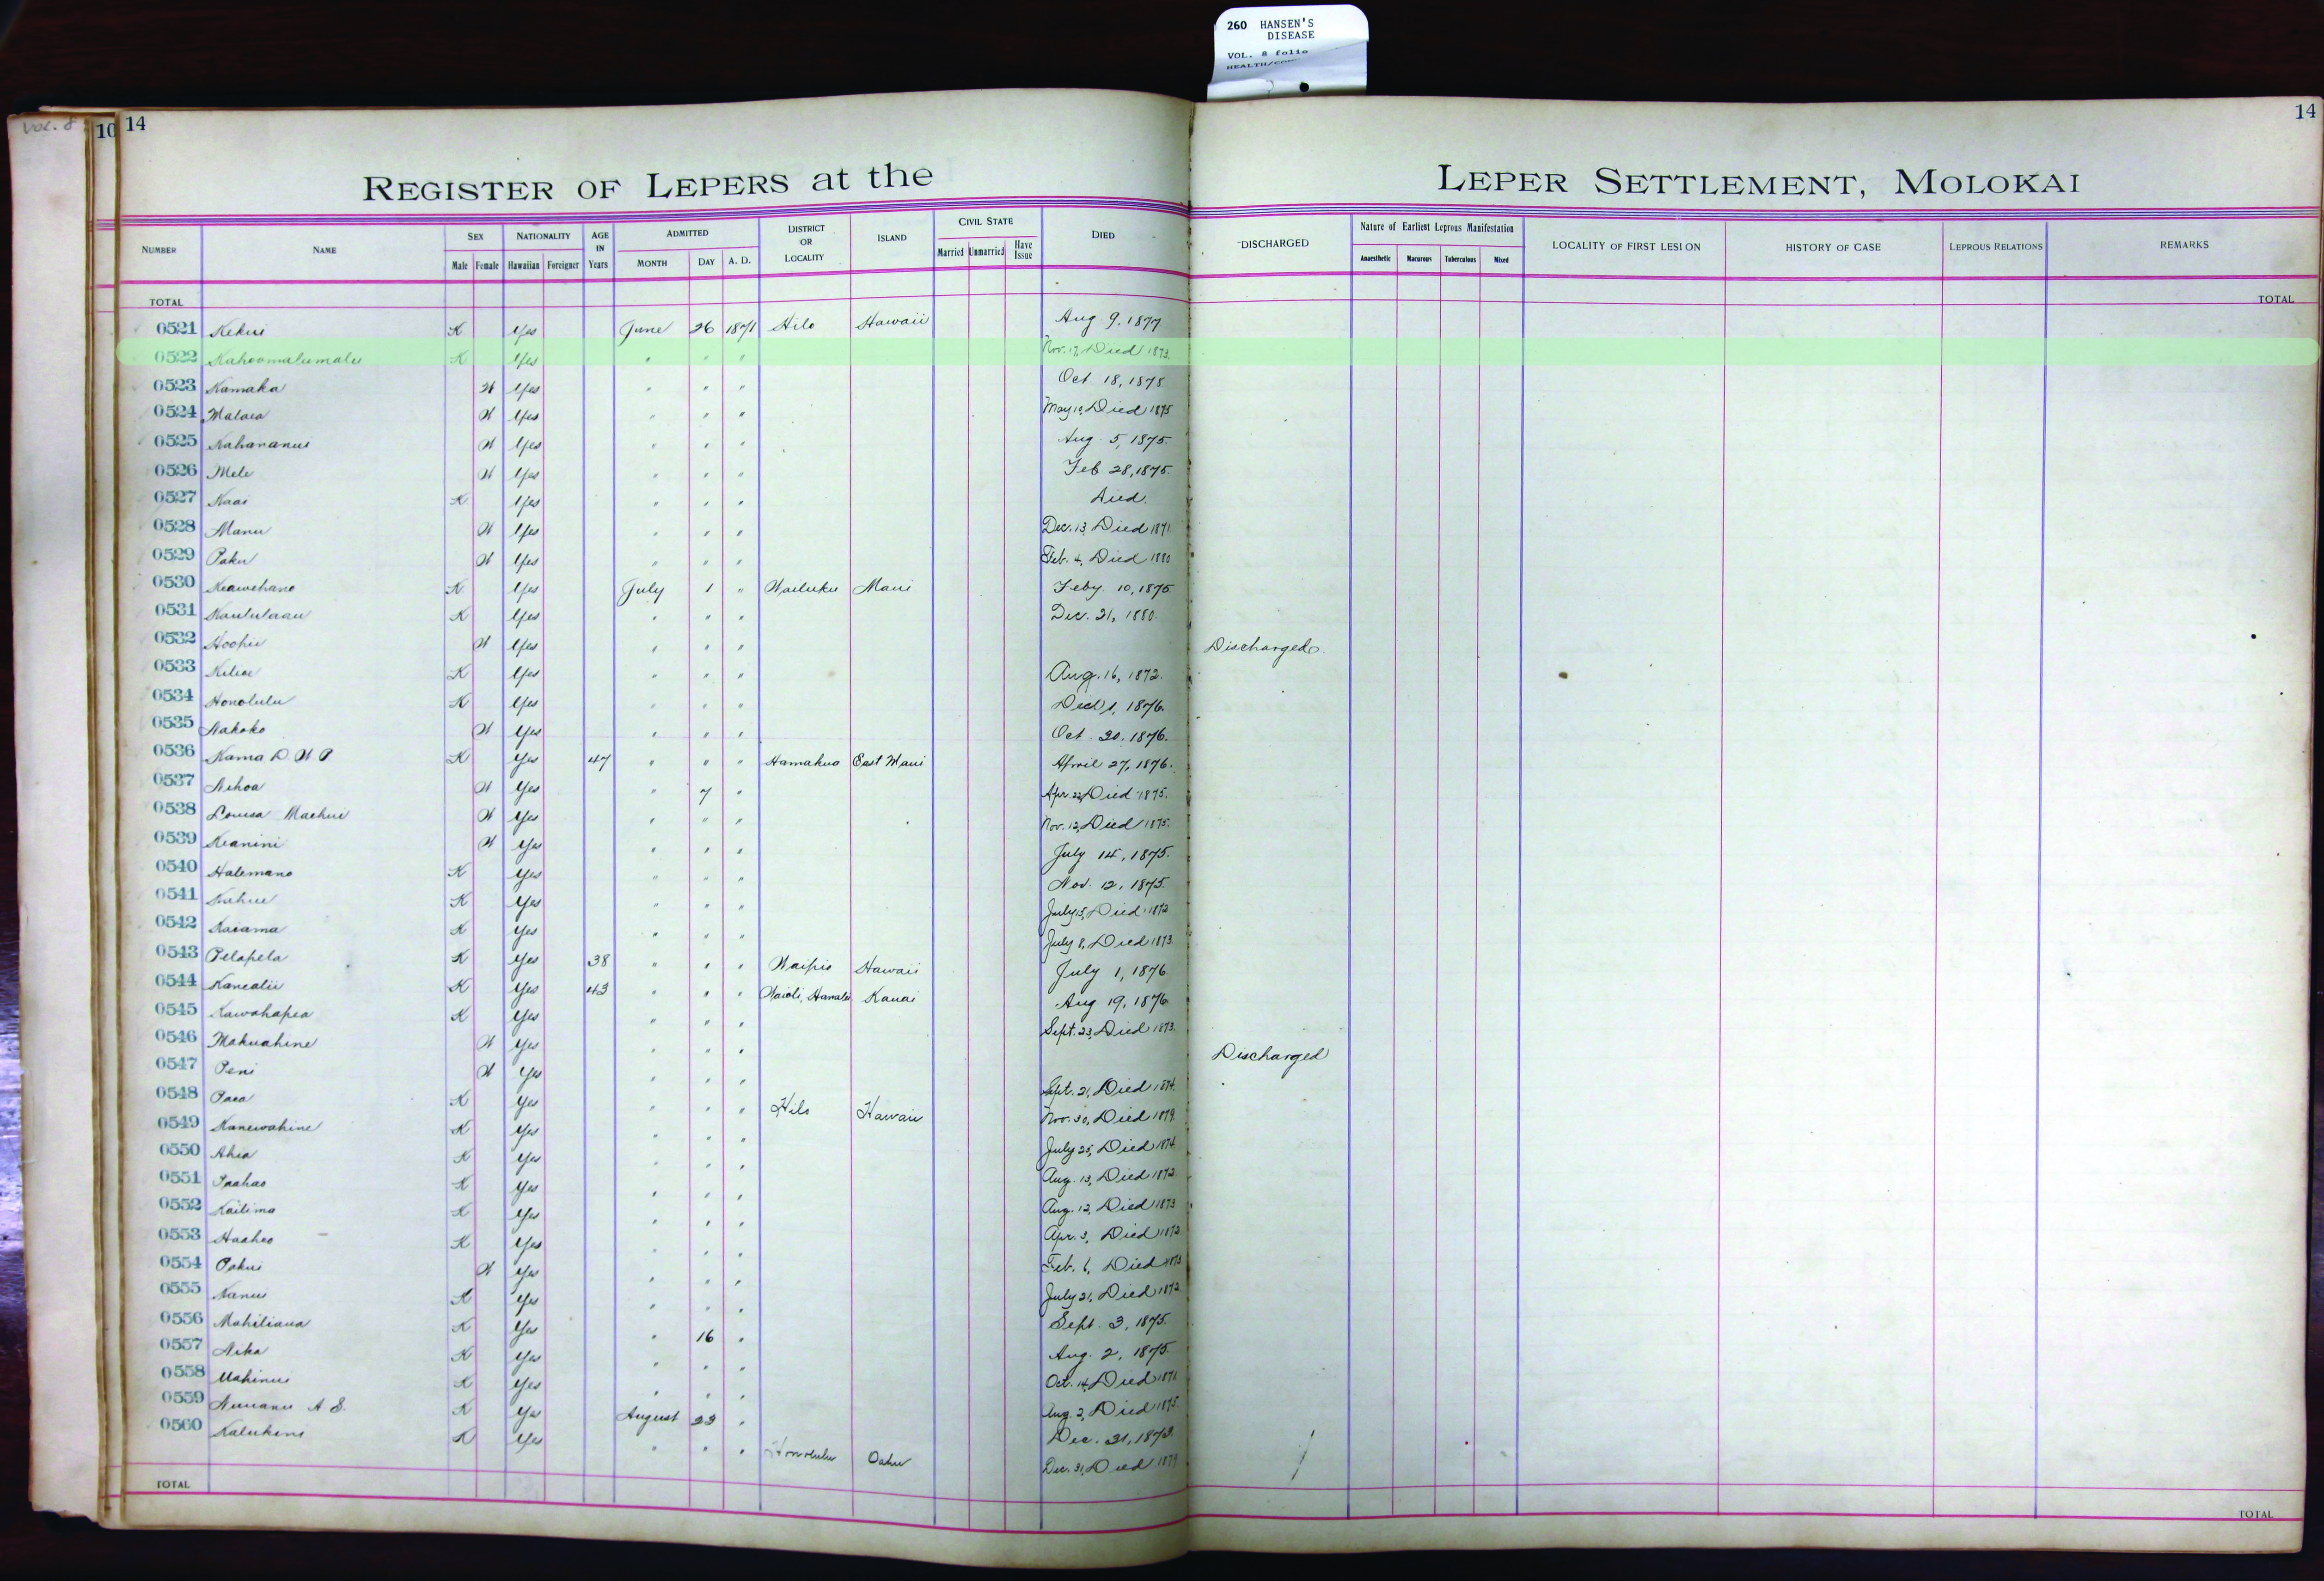 260 HANSEN'S
DISEASE
VOL. 8 folio
VOL. 8
10 14
14
REGISTER OF LEPERS at the LEPER SETTLEMENT, MOLOKAI
NUMBER NAME SEX Male Female NATIONALITY Hawaiian Foreigner AGE IN Years ADMITTED MONTH DAY A. D. DISTRICT OR LOCALITY ISLAND CIVIL STATE Married Unmarried Have Issue DIED DISCHARGED Nature of Earliest Leprous Manifestation Anaesthetic Macurous Tuberculous Mixed LOCALITY OF FIRST LESION HISTORY OF CASE LEPROUS RELATIONS REMARKS
TOTAL TOTAL
0521 Kekui K Yes June 26 1871 Hilo Hawaii Aug 9, 1877
0522 Kahoomalumalu K Yes " " " Nov. 17, Died 1873.
0523 Kamaka W Yes " " " Oct 18, 1875
0524 Malaea W Yes " " " May 10, Died 1875
0525 Kahananui W Yes " " " Aug. 5, 1875.
0526 Mele W Yes " " " Feb 28, 1875.
0527 Kaai K Yes " " " Died.
0528 Manu W Yes " " " Dec. 13, Died 1871
0529 Paku W Yes " " " Feb. 4, Died 1880
0530 Keawehano K Yes July 1 " Wailuku Maui Feby 10, 1875
0531 Kaululaau K Yes " " " Dec. 21, 1880.
0532 Hoohii W Yes " " " Discharged.
0533 Kiliae K Yes " " " Aug. 16, 1872.
0534 Honolulu K Yes " " " 1, 1876.
0535 Nakoko W Yes " " " Oct 20, 1876.
0536 Kama D. W P K Yes 47 " " " Hamakua East Maui April 27, 1876.
0537 Nihoa W Yes " 7 " Apr. 22, Died 1875.
0538 Louisa Maehui W Yes " " " Nov. 12, Died 1875.
0539 Keanini W Yes " " " July 14, 1875.
0540 Halemano K Yes " " " Nov. 12, 1875.
0541 Kahue K Yes " " " July 15, Died 1872
0542 Kaiama K Yes " " " July 8, Died 1873.
0543 Pelapela K Yes 38 " " " Waipio Hawaii July 1, 1876
0544 Kanealii K Yes 43 " " " Waioli, Hanalei Kauai Aug 19, 1876
0545 Kawahapea K Yes " " " Sept. 23, Died 1873.
0546 Makuahine W Yes " " " Discharged
0547 Peni W Yes " " " Sept. 21, Died 1874.
0548 Paea K Yes " " " Hilo Hawaii Nov. 30, Died 1879.
0549 Kanewahine K Yes " " " July 25, Died 1874.
0550 Ahia K Yes " " " Aug. 13, Died 1872.
0551 Paahao K Yes " " " Aug. 12, Died 1873
0552 Kailima K Yes " " " Apr. 3, Died 1872
0553 Haaheo K Yes " " " Feb. 6, Died 1873
0554 Pakui W Yes " " " July 21, Died 1872
0555 Nanui K Yes " " " Sept. 3, 1875.
0556 Mahiliana K Yes " 16 " Aug. 2, 1875.
0557 Nika K Yes " " " Oct. 14, Died 1871.
0558 Mahinui K Yes " " " Aug. 2, Died 1875.
0559 Nuuanu A S. K Yes August 23 " Dec. 31, 1873.
0560 Kaluhini K Yes " " " Honolulu Oahu Dec. 31, Died 1879
TOTAL TOTAL